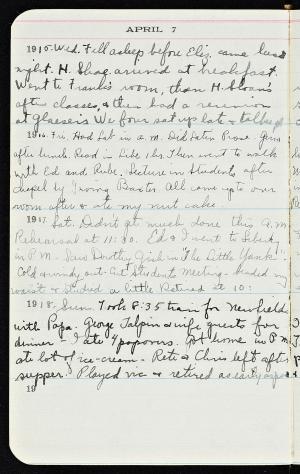 APRIL 7
1915. Wed. Fell asleep before Elis. came last
night. H. Shag arrived at breakfast.
Went to Frank's room, then H. Sloan's
after classes, & then had a reunion
at We four sat up late & talked
1916. Fri. Had Lat. in a.m. Did Latin Prose. Gym
after lunch. Read in Libe 1 hr. Then went to walk
with Ed and Rube. Lecture in Students after
chapel by Irving Bacter. All came up to our
room after & ate my nut cake.
1917. Sat. Didn't get much done this A.M.
Rehearsal at 11:30. Ed & I went to
in P.M. Saw Dorothy Gish in "The Little Yank".
Cold & windy out. Cut Students Meeting - beaded my
waist & studied a little. Retired at 10:
1918. Sun. Took 8:35 train for Newfield
with Papa. George Talpin & wife guests for
dinner. I ate 4 popovers. Got home in P.M.
ate lot of ice-cream. Reti & Chris left after
supper. Played vic & retired as early as
19